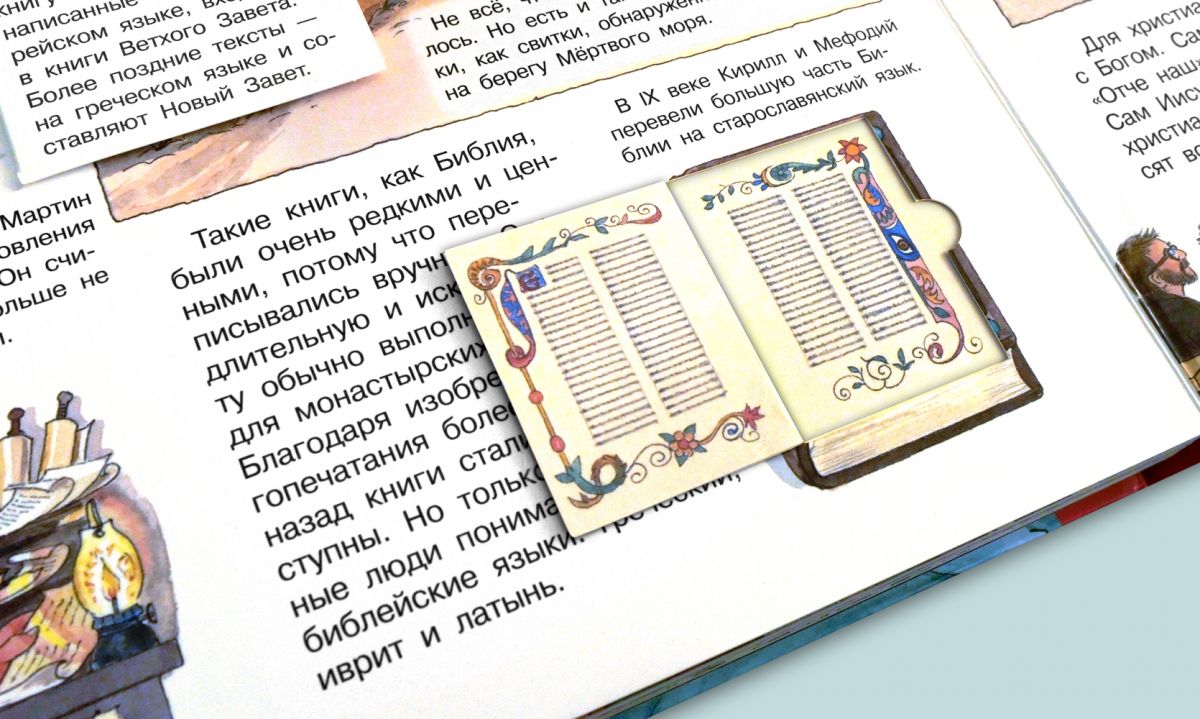 книгу
написанные
рейском языке, вхо
в книги Ветхого Завета.
Более поздние тексты —
на греческом языке и со-
ставляют Новый Завет.
Не всё,
лось. Но есть и
ки, как свитки, обнаружен
на берегу Мёртвого моря.
Мартин
овления
Он счи-
ольше не
Такие книги, как Библия,
были очень редкими и цен-
ными, потому что пере-
писывались вручн
длительную и иск
ту обычно выполн
для монастырских
Благодаря изобре
гопечатания боле
назад книги стали
ступны. Но только
ные люди понима
библейские языки: греческий,
иврит и латынь.
В IX веке Кирилл и Мефодий
перевели большую часть Би-
блии на старославянский язык.
Для христиа
с Богом. Сам
«Отче наш
Сам Иис
христиа
сят во